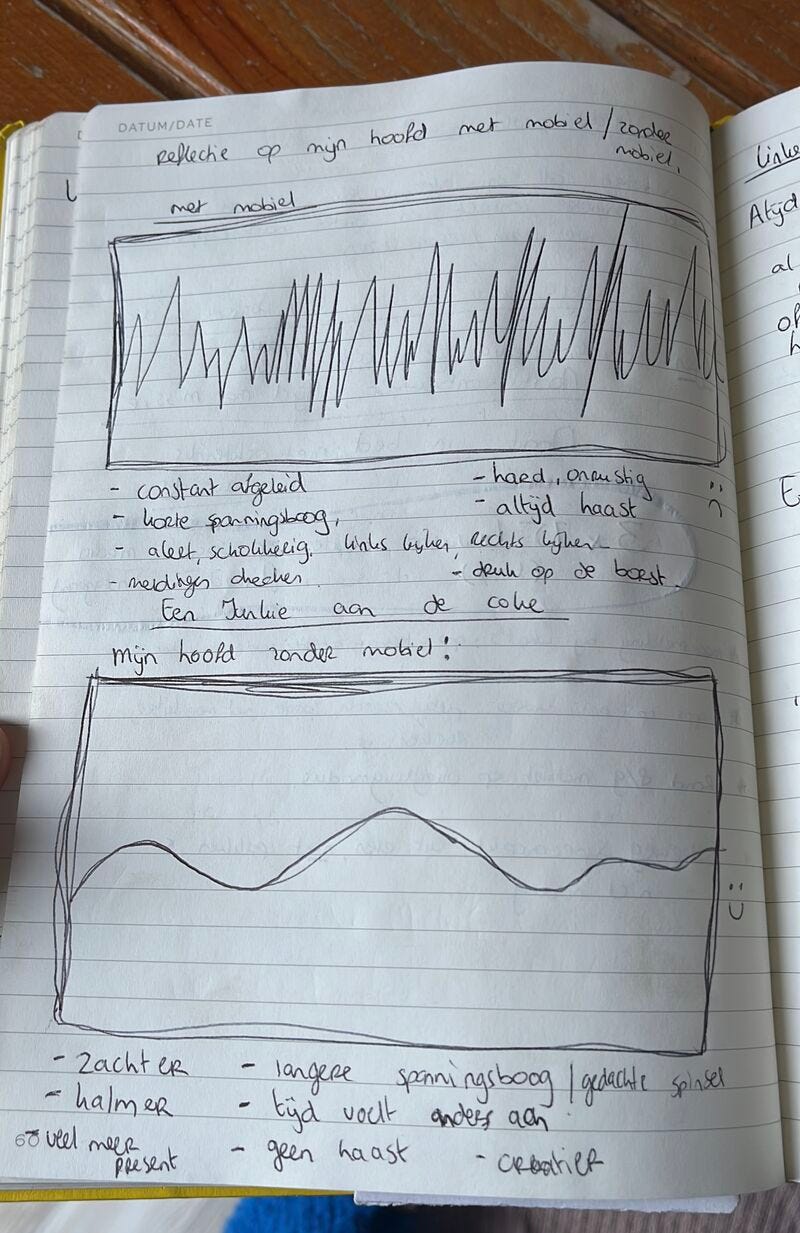 DATUM/DATE
Reflectie op mijn hoofd met mobiel / zonder
mobiel.
met mobiel
- constant afgeleid
- hard, onrustig
- korte spanningsboog,
- altijd haast
- alert, schokkerig, links kijken, rechts kijken
- meldingen checken
- druk op de borst
Een Junkie aan de coke
Mijn hoofd zonder mobiel!
- zachter
- langere spanningsboog / gedachte spinsel
- kalmer
- tijd voelt anders aan
- veel meer
present
- geen haast
- creatief
Altijd
al